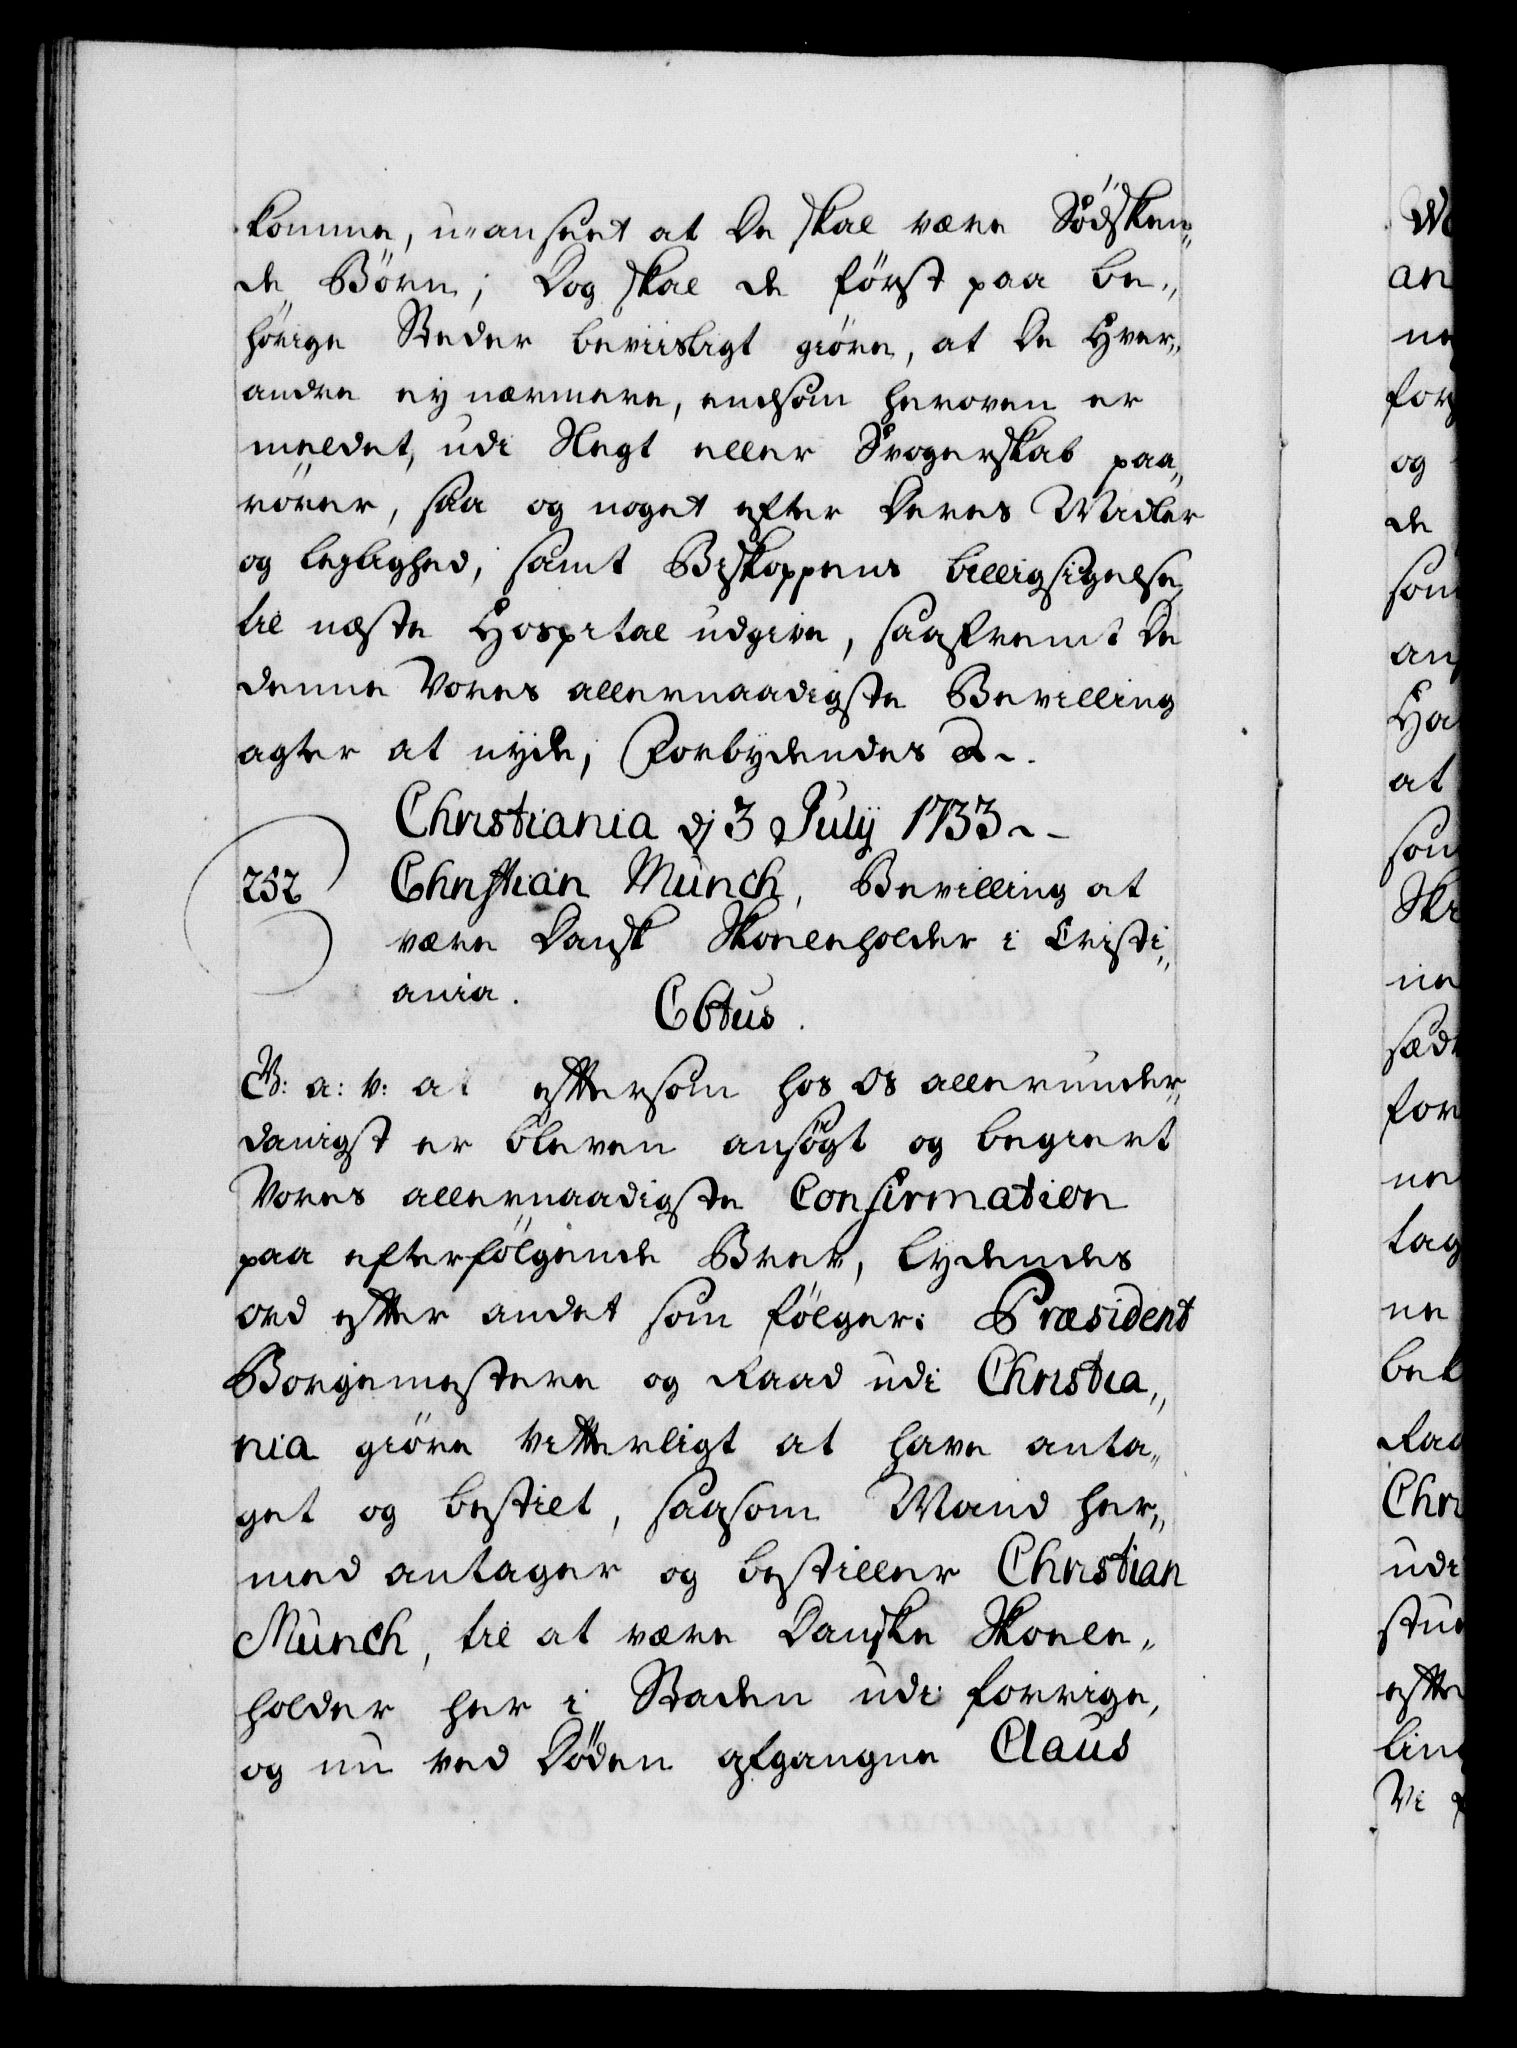 komme, u-anseet at de skal være Sødsken„
de Børn; Dog skal de først paa be„
hørige Steder beviisligt giøre, at de Hver„
andre ey nærmere, endsom heroven er
meldet, udi Slegt eller Svogerskab paa„
rører, saa og noget efter deres Midler
og leylighed, samt Biskoppens billigsigelse,
til næste Hospital udgive, saafremt de
denne Vores allernaadigste Bevilling
agter at nyde, Forbydendes &.
Christiania dj 3 Julij 1733
252 Christian Munch, Bevilling at
være Dansk Skoeleholder i Cristi„
ania.
C6tus.
G: a: v: at eftersom hos os allerunder„
danigst er bleven ansøgt og begiert
Vores allernaadigste Confirmation
paa efterfølgende Brev, lydendes
ord efter andet som følger: Præsident
Borgemestere og Raad udi Christia„
nia giøre vitterligt at have anta„
get og bestilt, saasom Wi and her„
med antager og bestiller Christian
Munch, til at være Danske Skoele„
holder her i Staden udi forrige,
og nu ved Døden afgangne Claus